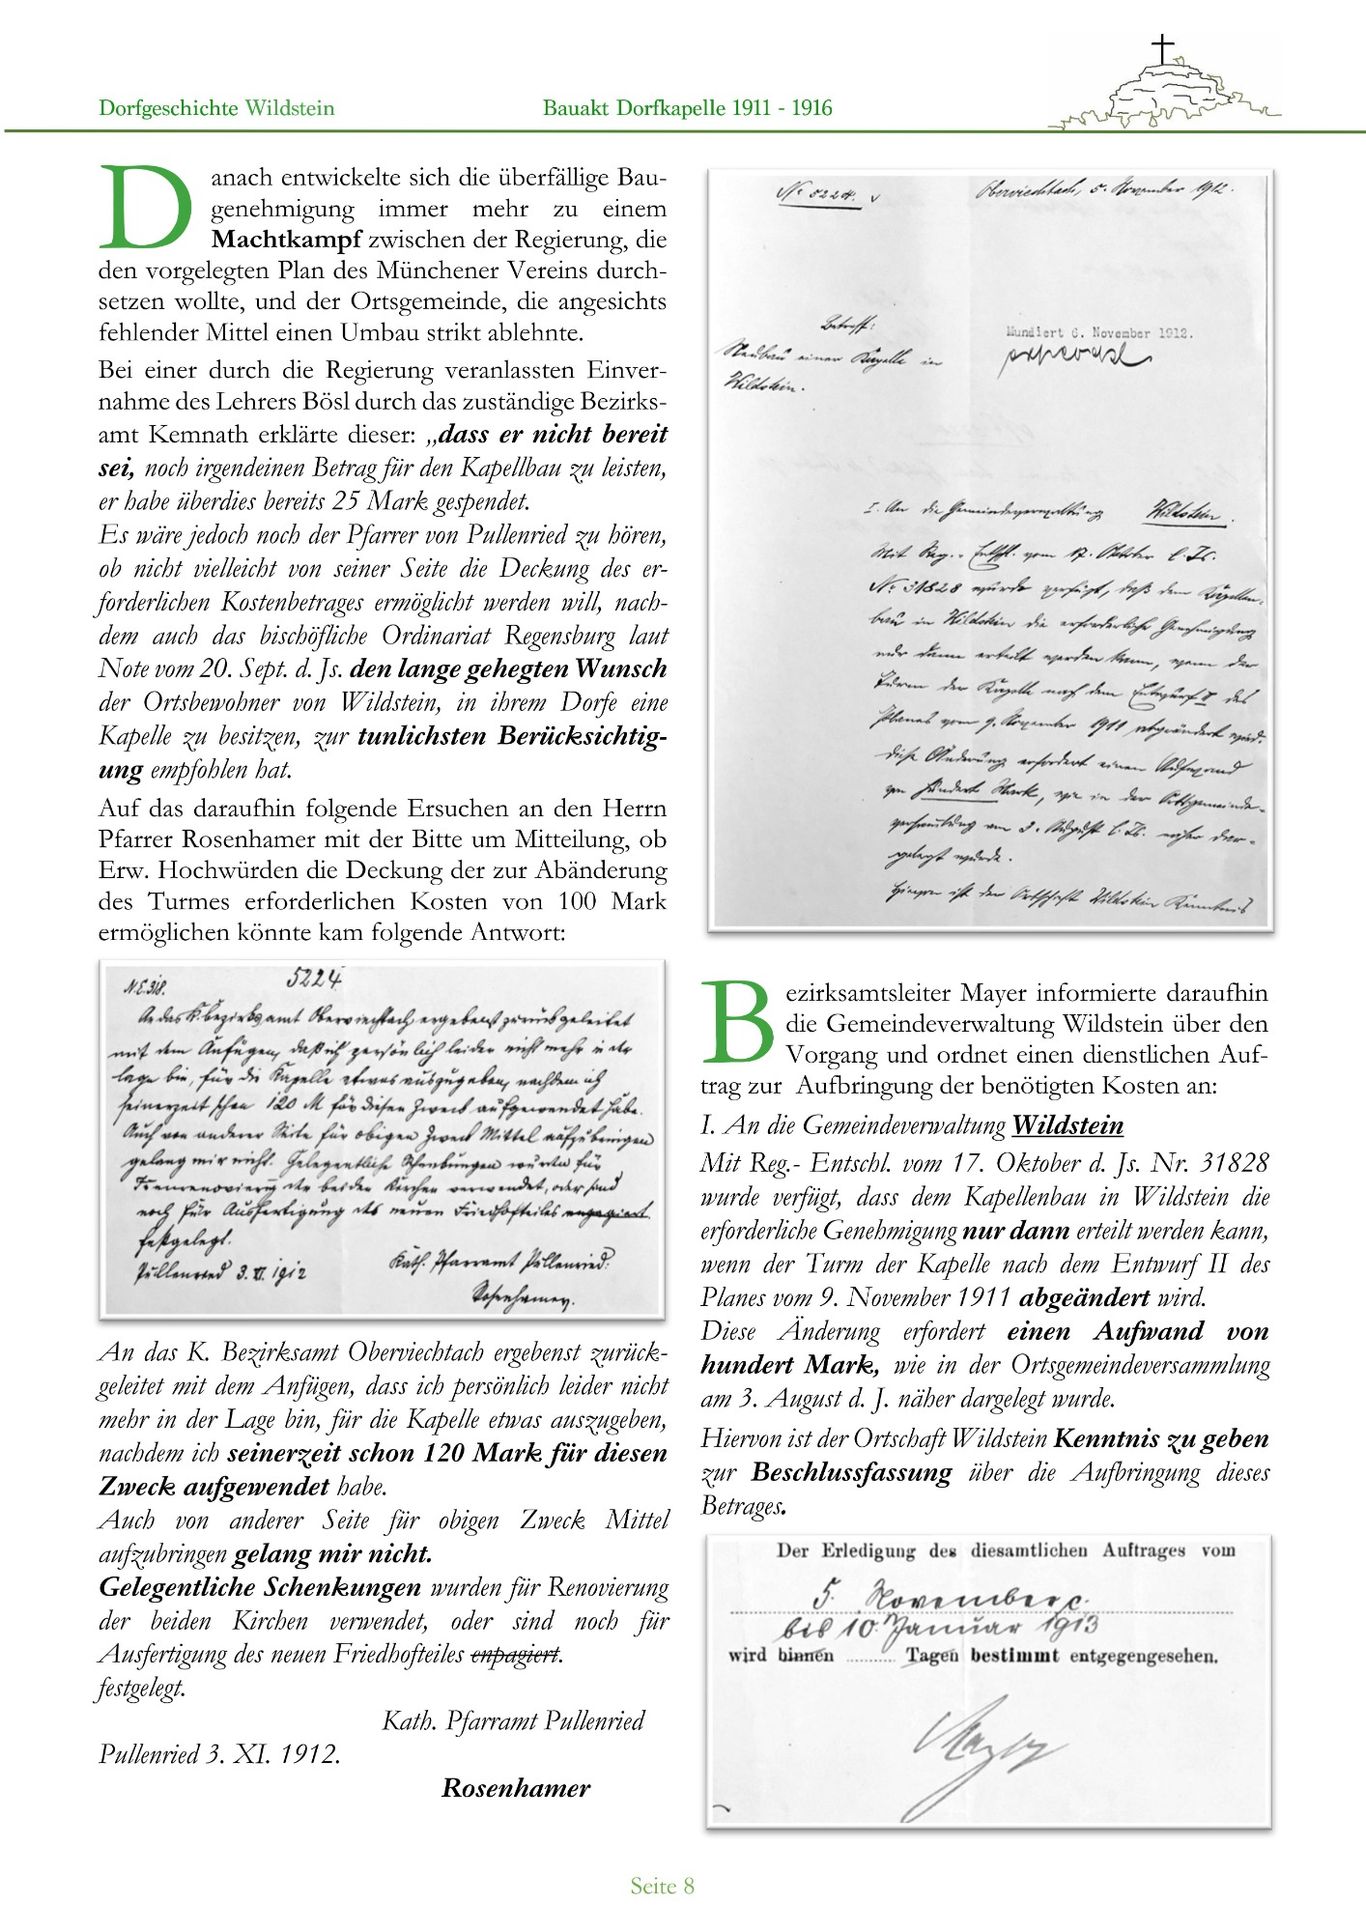 Dorfgeschichte Wildstein
Bauakt Dorfkapelle 1911 - 1916
Danach entwickelte sich die überfällige Bau-
genehmigung immer mehr zu einem
Machtkampf zwischen der Regierung, die
den vorgelegten Plan des Münchener Vereins durch-
setzen wollte, und der Ortsgemeinde, die angesichts
fehlender Mittel einen Umbau strikt ablehnte.
Bei einer durch die Regierung veranlassten Einver-
nahme des Lehrers Bösl durch das zuständige Bezirks-
amt Kemnath erklärte dieser: „dass er nicht bereit
sei, noch irgendeinen Betrag für den Kapellbau zu leisten,
er habe überdies bereits 25 Mark gespendet.
Es wäre jedoch noch der Pfarrer von Pullenried zu hören,
ob nicht vielleicht von seiner Seite die Deckung des er-
forderlichen Kostenbetrages ermöglicht werden will, nach-
dem auch das bischöfliche Ordinariat Regensburg laut
Note vom 20. Sept. d. Js. den lange gehegten Wunsch
der Ortsbewohner von Wildstein, in ihrem Dorfe eine
Kapelle zu besitzen, zur tunlichsten Berücksichtig-
ung empfohlen hat.
Auf das daraufhin folgende Ersuchen an den Herrn
Pfarrer Rosenhamer mit der Bitte um Mitteilung, ob
Erw. Hochwürden die Deckung der zur Abänderung
des Turmes erforderlichen Kosten von 100 Mark
ermöglichen könnte kam folgende Antwort:
N.E. 318. 5224
An das K. Bezirksamt Oberviechtach ergebenst zurückgeleitet
mit dem Anfügen, daß ich persönlich leider nicht mehr in der
Lage bin, für die Kapelle etwas auszugeben, nachdem ich
seinerzeit schon 120 M für diesen Zweck aufgewendet habe.
Auch von anderer Seite für obigen Zweck Mittel aufzubringen
gelang mir nicht. Gelegentliche Schenkungen wurden für
Renovierung der beiden Kirchen verwendet, oder sind
noch für Ausfertigung des neuen Friedhofteiles engagiert.
festgelegt.
Kath. Pfarramt Pullenried:
Pullenried 3. XI. 1912
Rosenhamer.
An das K. Bezirksamt Oberviechtach ergebenst zurück-
geleitet mit dem Anfügen, dass ich persönlich leider nicht
mehr in der Lage bin, für die Kapelle etwas auszugeben,
nachdem ich seinerzeit schon 120 Mark für diesen
Zweck aufgewendet habe.
Auch von anderer Seite für obigen Zweck Mittel
aufzubringen gelang mir nicht.
Gelegentliche Schenkungen wurden für Renovierung
der beiden Kirchen verwendet, oder sind noch für
Ausfertigung des neuen Friedhofteiles enpagiert.
festgelegt.
Kath. Pfarramt Pullenried
Pullenried 3. XI. 1912.
Rosenhamer
No 5224. Oberviechtach, 5. November 1912.
Betreff:
Neubau einer Kapelle in
Wildstein.
Mundiert 6. November 1912.
I. An die Gemeindeverwaltung Wildstein.
Mit Reg.- Entschl. vom 17. Oktober l. Js.
No 31828 wurde verfügt, daß dem Kapellen-
bau in Wildstein die erforderliche Genehmigung
nur dann erteilt werden kann, wenn der
Turm der Kapelle nach dem Entwurf II des
Planes vom 9. November 1911 abgeändert wird.
Diese Änderung erfordert einen Aufwand
von hundert Mark, wie in der Ortsgemeinde-
versammlung am 3. August l. Js. näher dar-
gelegt wurde.
Hievon ist der Ortschaft Wildstein Kenntnis
Bezirksamtsleiter Mayer informierte daraufhin
die Gemeindeverwaltung Wildstein über den
Vorgang und ordnet einen dienstlichen Auf-
trag zur Aufbringung der benötigten Kosten an:
I. An die Gemeindeverwaltung Wildstein
Mit Reg.- Entschl. vom 17. Oktober d. Js. Nr. 31828
wurde verfügt, dass dem Kapellenbau in Wildstein die
erforderliche Genehmigung nur dann erteilt werden kann,
wenn der Turm der Kapelle nach dem Entwurf II des
Planes vom 9. November 1911 abgeändert wird.
Diese Änderung erfordert einen Aufwand von
hundert Mark, wie in der Ortsgemeindeversammlung
am 3. August d. J. näher dargelegt wurde.
Hiervon ist der Ortschaft Wildstein Kenntnis zu geben
zur Beschlussfassung über die Aufbringung dieses
Betrages.
Der Erledigung des diesamtlichen Auftrages vom
5. November c.
bis 10. Januar 1913
wird binnen .......... Tagen bestimmt entgegengesehen.
Mayer
Seite 8